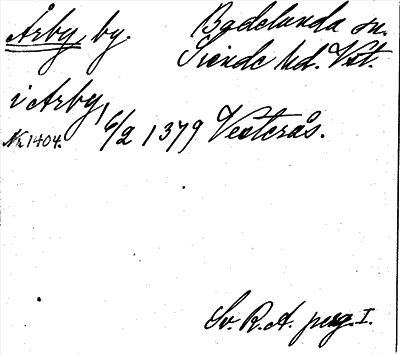 Årby by. Badelunda sn.
Siende hd. Vst.
i Arby, 6/2 1379 Vesterås.
Nr. 1404.
Sv. R. A. perg. I.